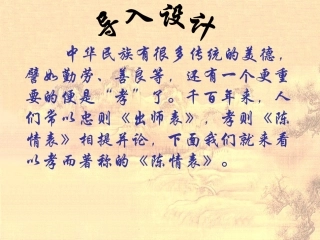 导入设计
中华民族有很多传统的美德，
譬如勤劳、善良等，还有一个更重
要的便是“孝”了。千百年来，人
们常以忠则《出师表》，孝则《陈
情表》相提并论，下面我们就来看
以孝而著称的《陈情表》。